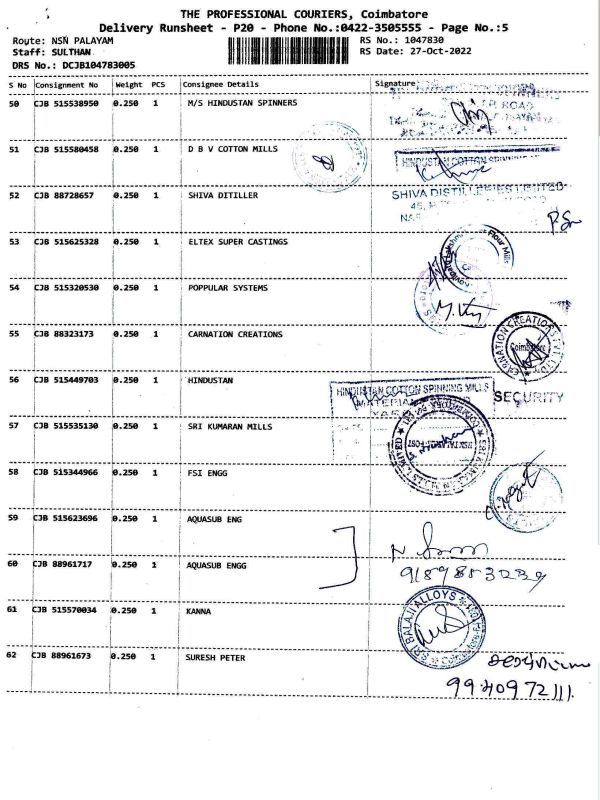 THE PROFESSIONAL COURIERS, Coimbatore
Delivery Runsheet - P20 - Phone No.:0422-3505555 - Page No.:5
Route: NSN PALAYAM
RS No.: 1047830
Staff: SULTHAN
RS Date: 27-Oct-2022
DRS No.: DCJB104783005
S No Consignment No Weight PCS Consignee Details Signature
50 CJB 515538950 0.250 1 M/S HINDUSTAN SPINNERS
ROAD
51 CJB 515580458 0.250 1 D B V COTTON MILLS
HINDUSTAN COTTON SPINNING
52 CJB 88728657 0.250 1 SHIVA DITILLER
SHIVA DISTILLERIES LIMITED
53 CJB 515625328 0.250 1 ELTEX SUPER CASTINGS
Flour Mills
54 CJB 515320530 0.250 1 POPPULAR SYSTEMS
55 CJB 88323173 0.250 1 CARNATION CREATIONS
Coimbatore
56 CJB 515449703 0.250 1 HINDUSTAN
HINDUSTAN COTTON SPINNING MILLS
SECURITY
57 CJB 515535130 0.250 1 SRI KUMARAN MILLS
58 CJB 515344966 0.250 1 FSI ENGG
59 CJB 515623696 0.250 1 AQUASUB ENG
60 CJB 88961717 0.250 1 AQUASUB ENGG
9189883039
61 CJB 515570034 0.250 1 KANNA
SRI BALAJI ALLOYS
62 CJB 88961673 0.250 1 SURESH PETER
9940972111